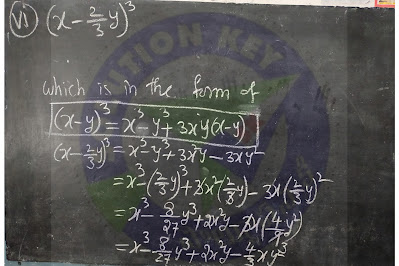 (vi) (x - 2/3 y)³
which is in the form of
(x-y)³ = x³-y³+3xy(x-y)
(x - 2/3 y)³ = x³-y³+3x²y-3xy²
= x³-(2/3 y)³+3x²(2/3 y)-3x(2/3 y)²
= x³ - 8/27 y³+2x²y-3x(4/9 y²)
= x³ - 8/27 y³+2x²y - 4/3 xy²
TION KEY